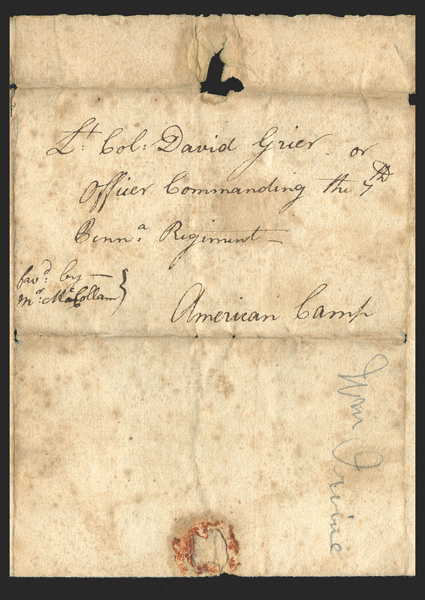 Lt Col: David Grier or
Officer Commanding the 7th
Penna Regiment
favd by
Mr McCollam
American Camp
Wm Irvine